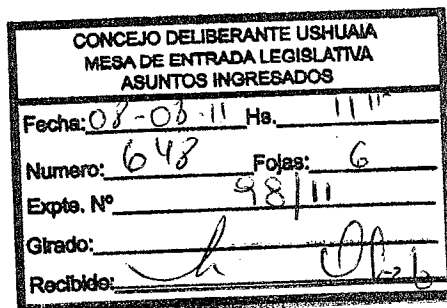 CONCEJO DELIBERANTE USHUAIA
MESA DE ENTRADA LEGISLATIVA
ASUNTOS INGRESADOS
Fecha: 08-03-11 Hs. 11 11
Numero: 648 Fojas: 6
Expte. Nº 98/11
Girado:
Recibido: